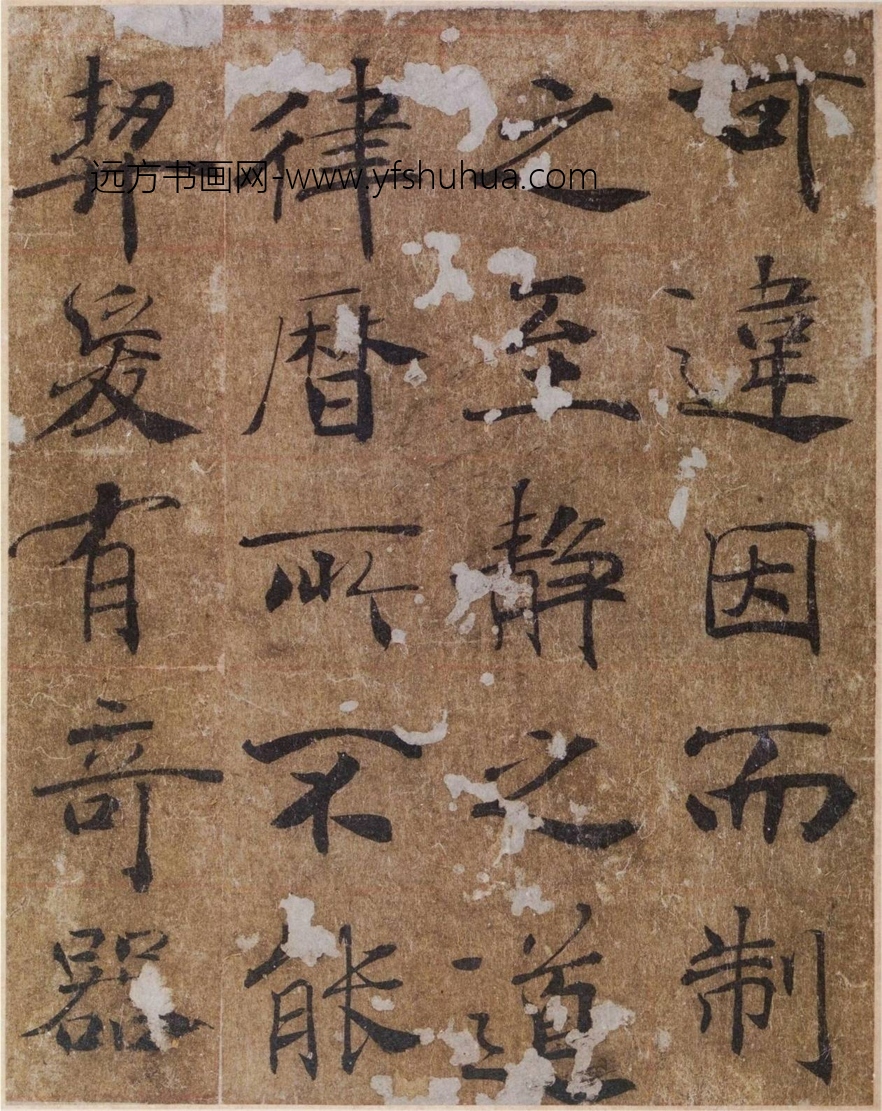 可違因而制
之至静之道
律暦所不能
契爰有竒器
远方书画网-www.yfshuhua.com